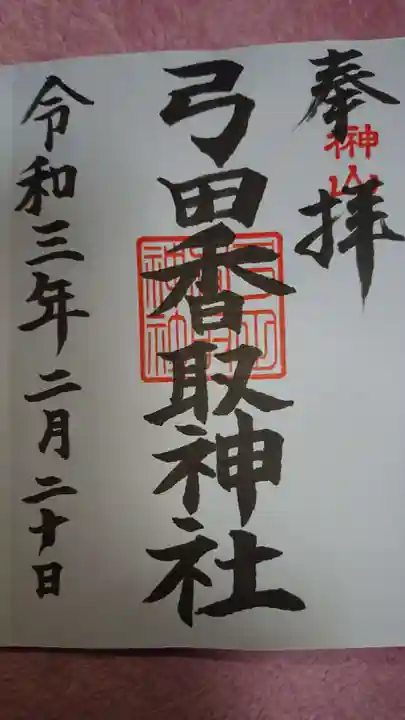 奉拝
榊山
弓田香取神社
令和三年二月二十日